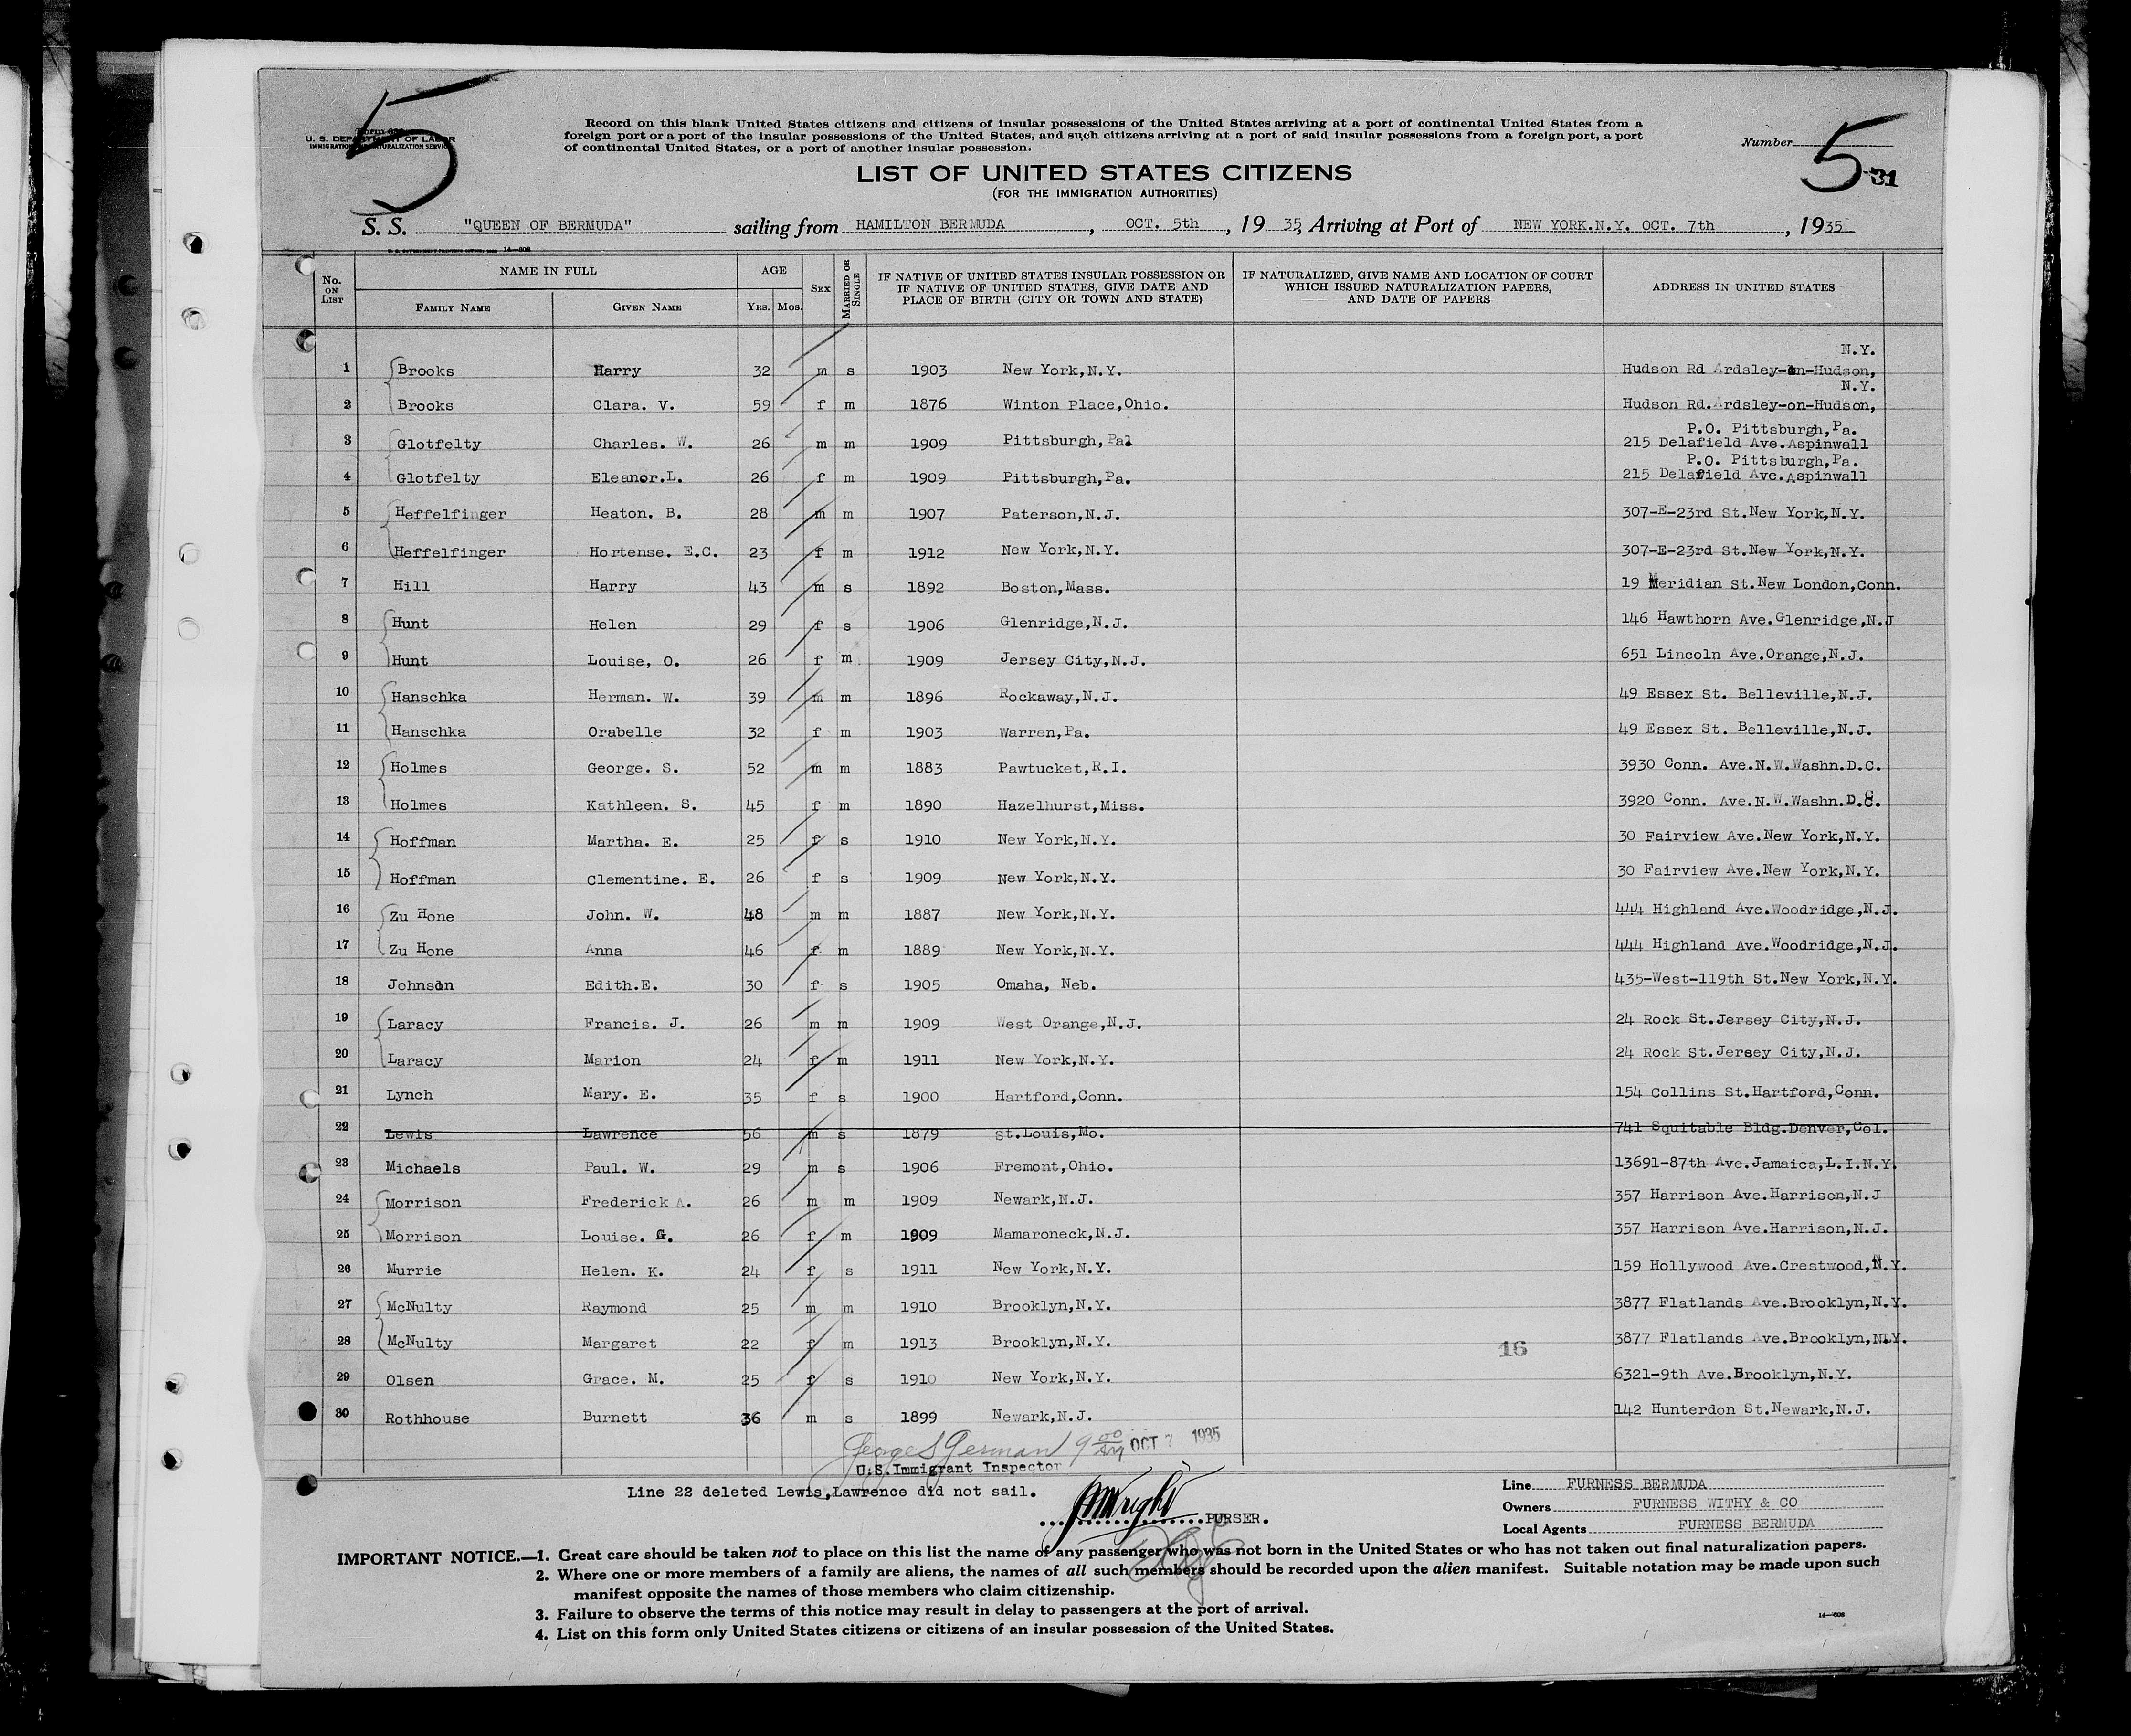 5
Form 630
U. S. DEPARTMENT OF LABOR
IMMIGRATION AND NATURALIZATION SERVICE
Record on this blank United States citizens and citizens of insular possessions of the United States arriving at a port of continental United States from a
foreign port or a port of the insular possessions of the United States, and such citizens arriving at a port of said insular possessions from a foreign port, a port
of continental United States, or a port of another insular possession.
Number 5 31
LIST OF UNITED STATES CITIZENS
(FOR THE IMMIGRATION AUTHORITIES)
S. S. "QUEEN OF BERMUDA" sailing from HAMILTON BERMUDA, OCT. 5th, 19 35, Arriving at Port of NEW YORK.N.Y. OCT. 7th, 1935
14—608
No. ON LIST NAME IN FULL FAMILY NAME GIVEN NAME AGE YRS. MOS. SEX MARRIED OR SINGLE IF NATIVE OF UNITED STATES INSULAR POSSESSION OR IF NATIVE OF UNITED STATES, GIVE DATE AND PLACE OF BIRTH (CITY OR TOWN AND STATE) IF NATURALIZED, GIVE NAME AND LOCATION OF COURT WHICH ISSUED NATURALIZATION PAPERS, AND DATE OF PAPERS ADDRESS IN UNITED STATES
N.Y.
1 Brooks Harry 32 m s 1903 New York,N.Y. Hudson Rd Ardsley-on-Hudson,
N.Y.
2 Brooks Clara. V. 59 f m 1876 Winton Place,Ohio. Hudson Rd.Ardsley-on-Hudson,
P.O. Pittsburgh,Pa.
3 Glotfelty Charles. W. 26 m m 1909 Pittsburgh,Pa1 215 Delafield Ave.Aspinwall
P.O. Pittsburgh,Pa.
4 Glotfelty Eleanor.L. 26 f m 1909 Pittsburgh,Pa. 215 Delafield Ave.Aspinwall
5 Heffelfinger Heaton. B. 28 m m 1907 Paterson,N.J. 307-E-23rd St.New York,N.Y.
6 Heffelfinger Hortense. E.C. 23 f m 1912 New York,N.Y. 307-E-23rd St.New York,N.Y.
7 Hill Harry 43 m s 1892 Boston,Mass. 19 Meridian St.New London,Conn.
8 Hunt Helen 29 f s 1906 Glenridge,N.J. 146 Hawthorn Ave.Glenridge,N.J
9 Hunt Louise, O. 26 f m 1909 Jersey City,N.J. 651 Lincoln Ave.Orange,N.J.
10 Hanschka Herman. W. 39 m m 1896 Rockaway,N.J. 49 Essex St. Belleville,N.J.
11 Hanschka Orabelle 32 f m 1903 Warren,Pa. 49 Essex St. Belleville,N.J.
12 Holmes George. S. 52 m m 1883 Pawtucket,R.I. 3930 Conn. Ave.N.W.Washn.D.C.
13 Holmes Kathleen. S. 45 f m 1890 Hazelhurst,Miss. 3920 Conn. Ave.N.W.Washn.D.C.
14 Hoffman Martha. E. 25 f s 1910 New York,N.Y. 30 Fairview Ave.New York,N.Y.
15 Hoffman Clementine. E. 26 f s 1909 New York,N.Y. 30 Fairview Ave.New York,N.Y.
16 Zu Hone John. W. 48 m m 1887 New York,N.Y. 444 Highland Ave.Woodridge,N.J.
17 Zu Hone Anna 46 f m 1889 New York,N.Y. 444 Highland Ave.Woodridge,N.J.
18 Johnson Edith.E. 30 f s 1905 Omaha, Neb. 435-West-119th St.New York,N.Y.
19 Laracy Francis. J. 26 m m 1909 West Orange,N.J. 24 Rock St.Jersey City,N.J.
20 Laracy Marion 24 f m 1911 New York,N.Y. 24 Rock St.Jersey City,N.J.
21 Lynch Mary. E. 35 f s 1900 Hartford,Conn. 154 Collins St.Hartford,Conn.
22 Lewis Lawrence 56 m s 1879 St.Louis,Mo. 741 Squitable Bldg.Denver,Col.
23 Michaels Paul. W. 29 m s 1906 Fremont,Ohio. 13691-87th Ave.Jamaica,L.I.N.Y.
24 Morrison Frederick A. 26 m m 1909 Newark,N.J. 357 Harrison Ave.Harrison,N.J
25 Morrison Louise. G. 26 f m 1909 Mamaroneck,N.J. 357 Harrison Ave.Harrison,N.J.
26 Murrie Helen. K. 24 f s 1911 New York,N.Y. 159 Hollywood Ave.Crestwood,N.Y.
27 McNulty Raymond 25 m m 1910 Brooklyn,N.Y. 3877 Flatlands Ave.Brooklyn,N.Y.
28 McNulty Margaret 22 f m 1913 Brooklyn,N.Y. 3877 Flatlands Ave.Brooklyn,N.Y.
16
29 Olsen Grace. M. 25 f s 1910 New York,N.Y. 6321-9th Ave.Brooklyn,N.Y.
30 Rothhouse Burnett 36 m s 1899 Newark,N.J. 142 Hunterdon St.Newark,N.J.
George S German 9 00 AM OCT 7 1935
U.S.Immigrant Inspector
Line 22 deleted Lewis,Lawrence did not sail.
JMWright PURSER.
Line FURNESS BERMUDA
Owners FURNESS WITHY & CO
Local Agents FURNESS BERMUDA
IMPORTANT NOTICE.—1. Great care should be taken not to place on this list the name of any passenger who was not born in the United States or who has not taken out final naturalization papers.
2. Where one or more members of a family are aliens, the names of all such members should be recorded upon the alien manifest. Suitable notation may be made upon such
manifest opposite the names of those members who claim citizenship.
3. Failure to observe the terms of this notice may result in delay to passengers at the port of arrival.
4. List on this form only United States citizens or citizens of an insular possession of the United States.
14—608